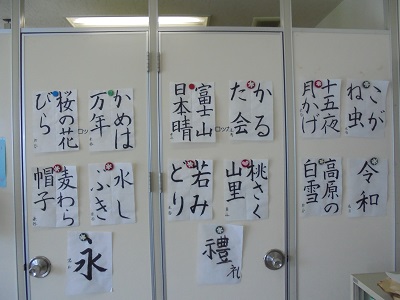 こが
ね虫
十五夜
月かげ
かる
た会
富士山
日本晴
かめは
万年
桜の花
びら
令和
高原の
白雪
桃さく
山里
若み
どり
水し
ぶき
麦わら
帽子
禮
礼
永
ロック
ロック